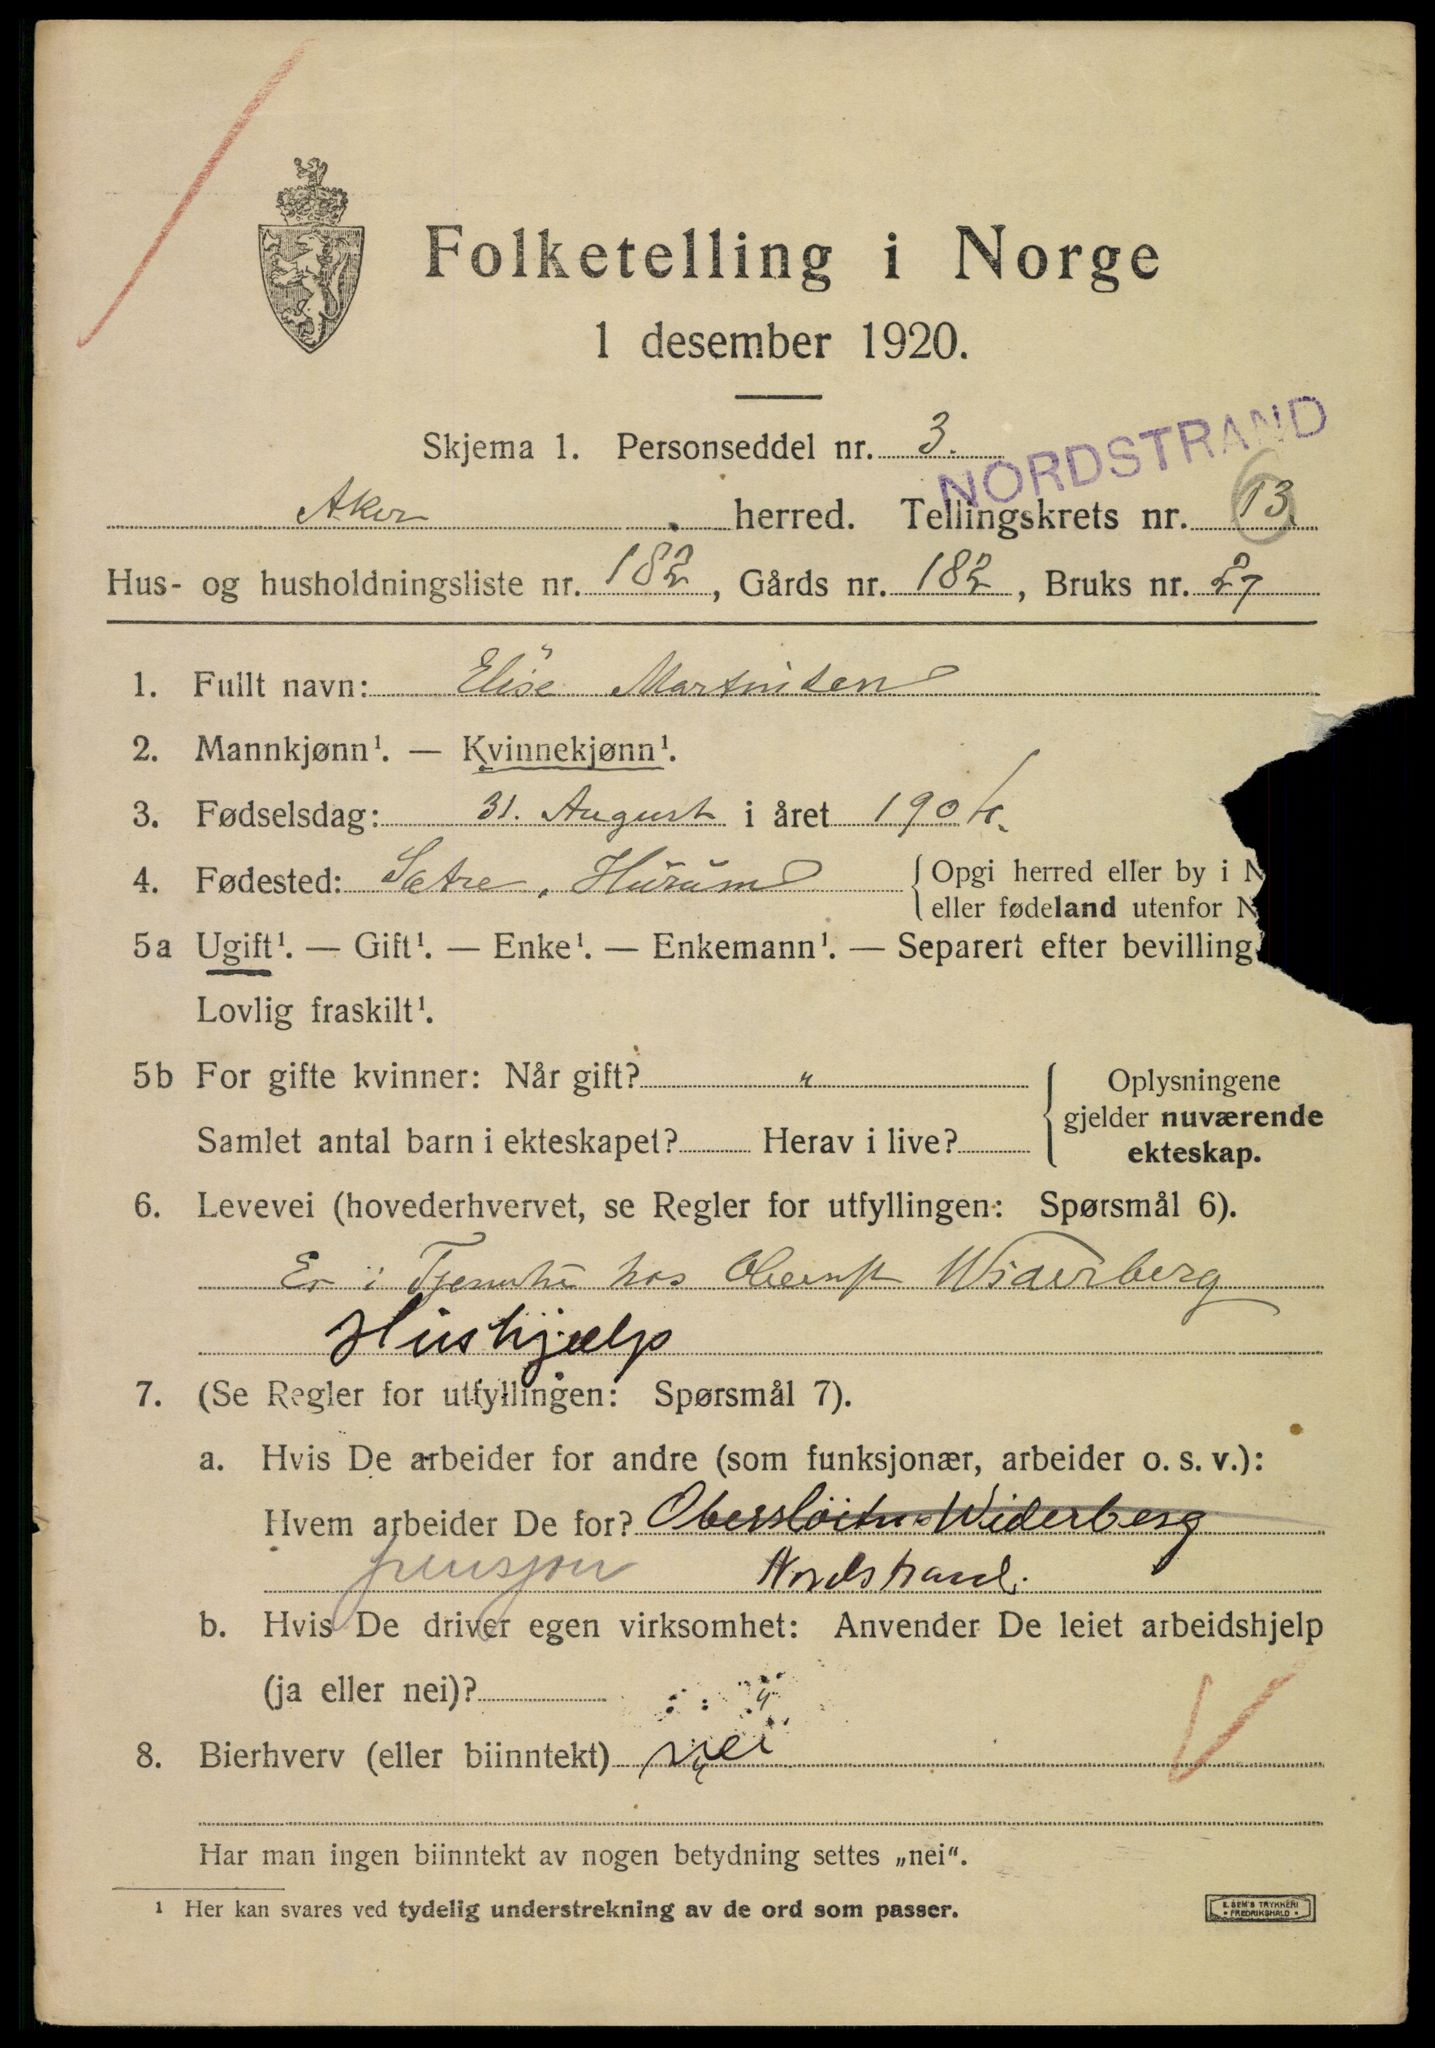 Folketelling i Norge
1 desember 1920.
Skjema 1. Personseddel nr. 3.
NORDSTRAND
Aker herred. Tellingskrets nr. 13
Hus- og husholdningsliste nr. 182, Gårds nr. 182, Bruks nr. 27
1. Fullt navn: Elise Martinsen
2. Mannkjønn¹. — Kvinnekjønn¹.
3. Fødselsdag: 31. August i året 1904.
4. Fødested: Sætre, Hurum { Opgi herred eller by i N
eller fødeland utenfor N
5a Ugift¹. — Gift¹. — Enke¹. — Enkemann¹. — Separert efter bevilling
Lovlig fraskilt¹.
5b For gifte kvinner: Når gift? „
Samlet antal barn i ekteskapet? Herav i live?
Oplysningene
gjelder nuværende
ekteskap.
6. Levevei (hovederhvervet, se Regler for utfyllingen: Spørsmål 6).
Er i Tjeneste hos Widerberg
Hushjælp
7. (Se Regler for utfyllingen: Spørsmål 7).
a. Hvis De arbeider for andre (som funksjonær, arbeider o. s. v.):
Hvem arbeider De for? Widerberg
pensjon Nordstrand.
b. Hvis De driver egen virksomhet: Anvender De leiet arbeidshjelp
(ja eller nei)? „
8. Bierhverv (eller biinntekt) nei
Har man ingen biinntekt av nogen betydning settes „nei“.
¹ Her kan svares ved tydelig understrekning av de ord som passer.
E. SEM'S TRYKKERI
• FREDRIKSHALD •